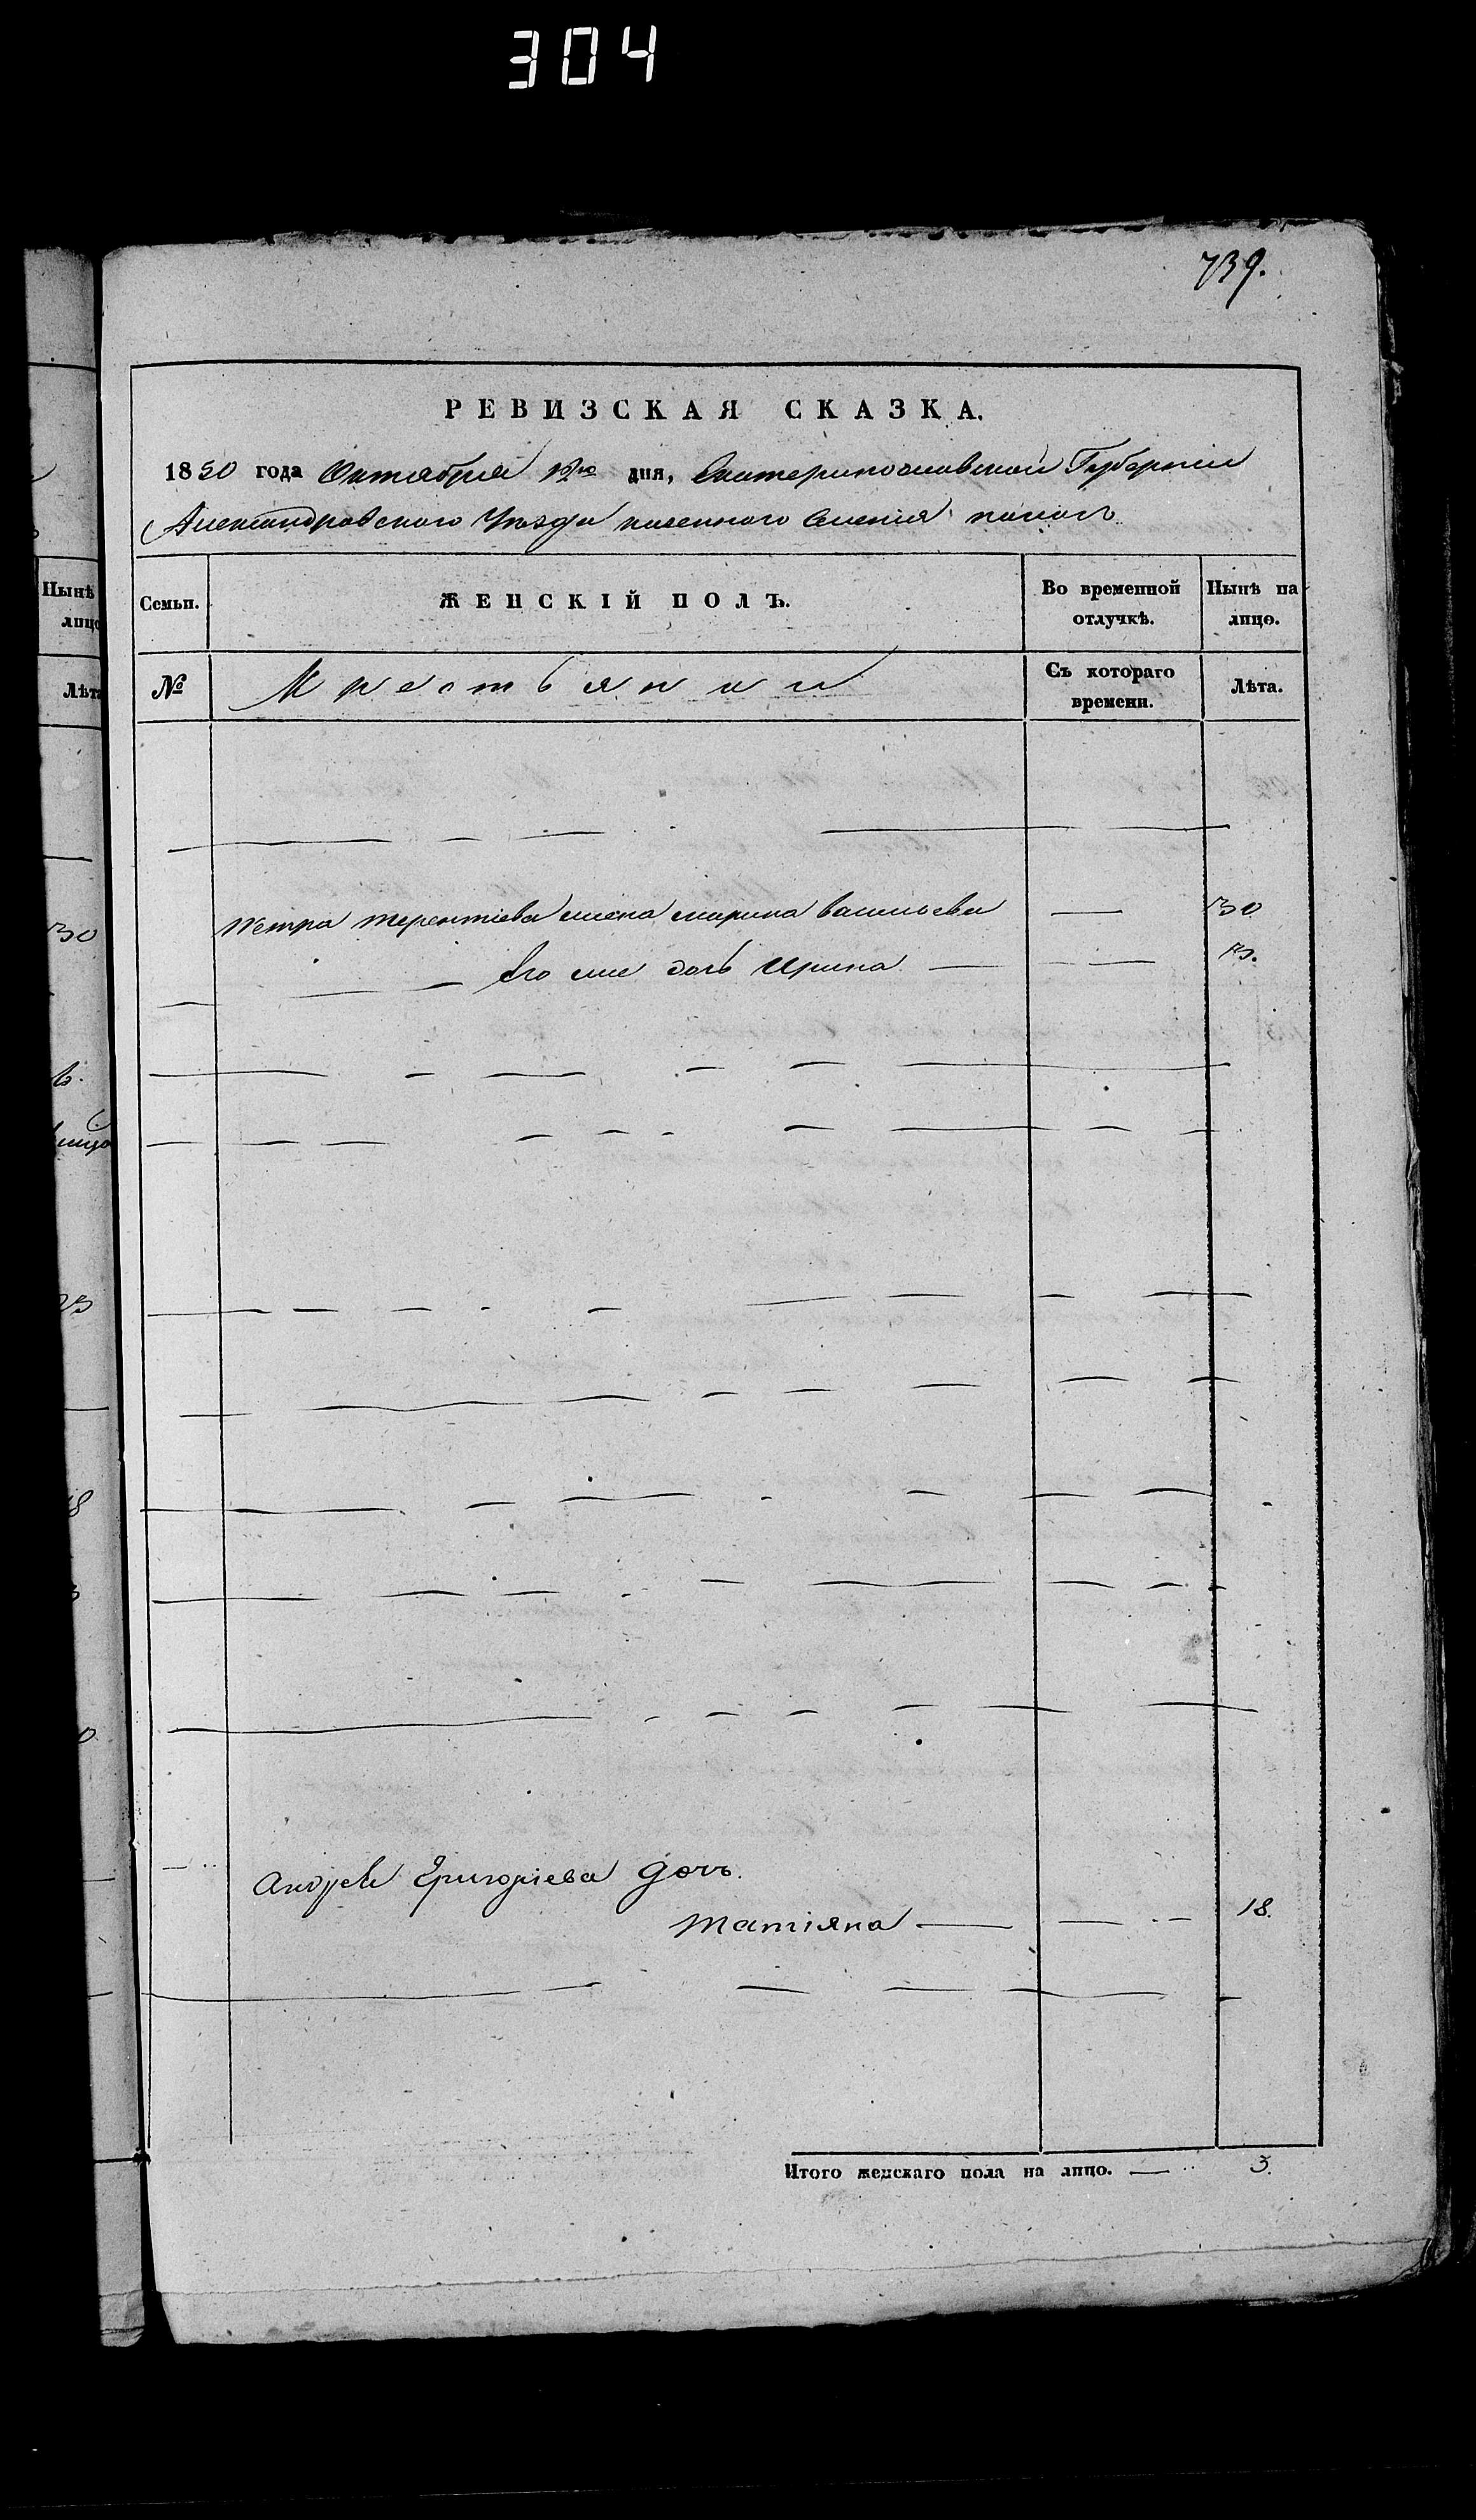 304
739.
РЕВИЗСКАЯ СКАЗКА.
1850 года Октября дня, Екатеринославской Губернии
Александровского Уезда казенного Селения
Семьи. ЖЕНСКІЙ ПОЛЪ. Во временной отлучкѣ. Нынѣ на лицо.
№ Крестьянки Съ котораго времени. Лѣта.
Петра Терентіева жена Марина Васильева — 30
Его же дочь Ирина —
Андрея Григоріева дочь.
Татіяна — 18.
Итого женскаго пола на лицо. — 3.
Нынѣ
лицо
Лѣта
30